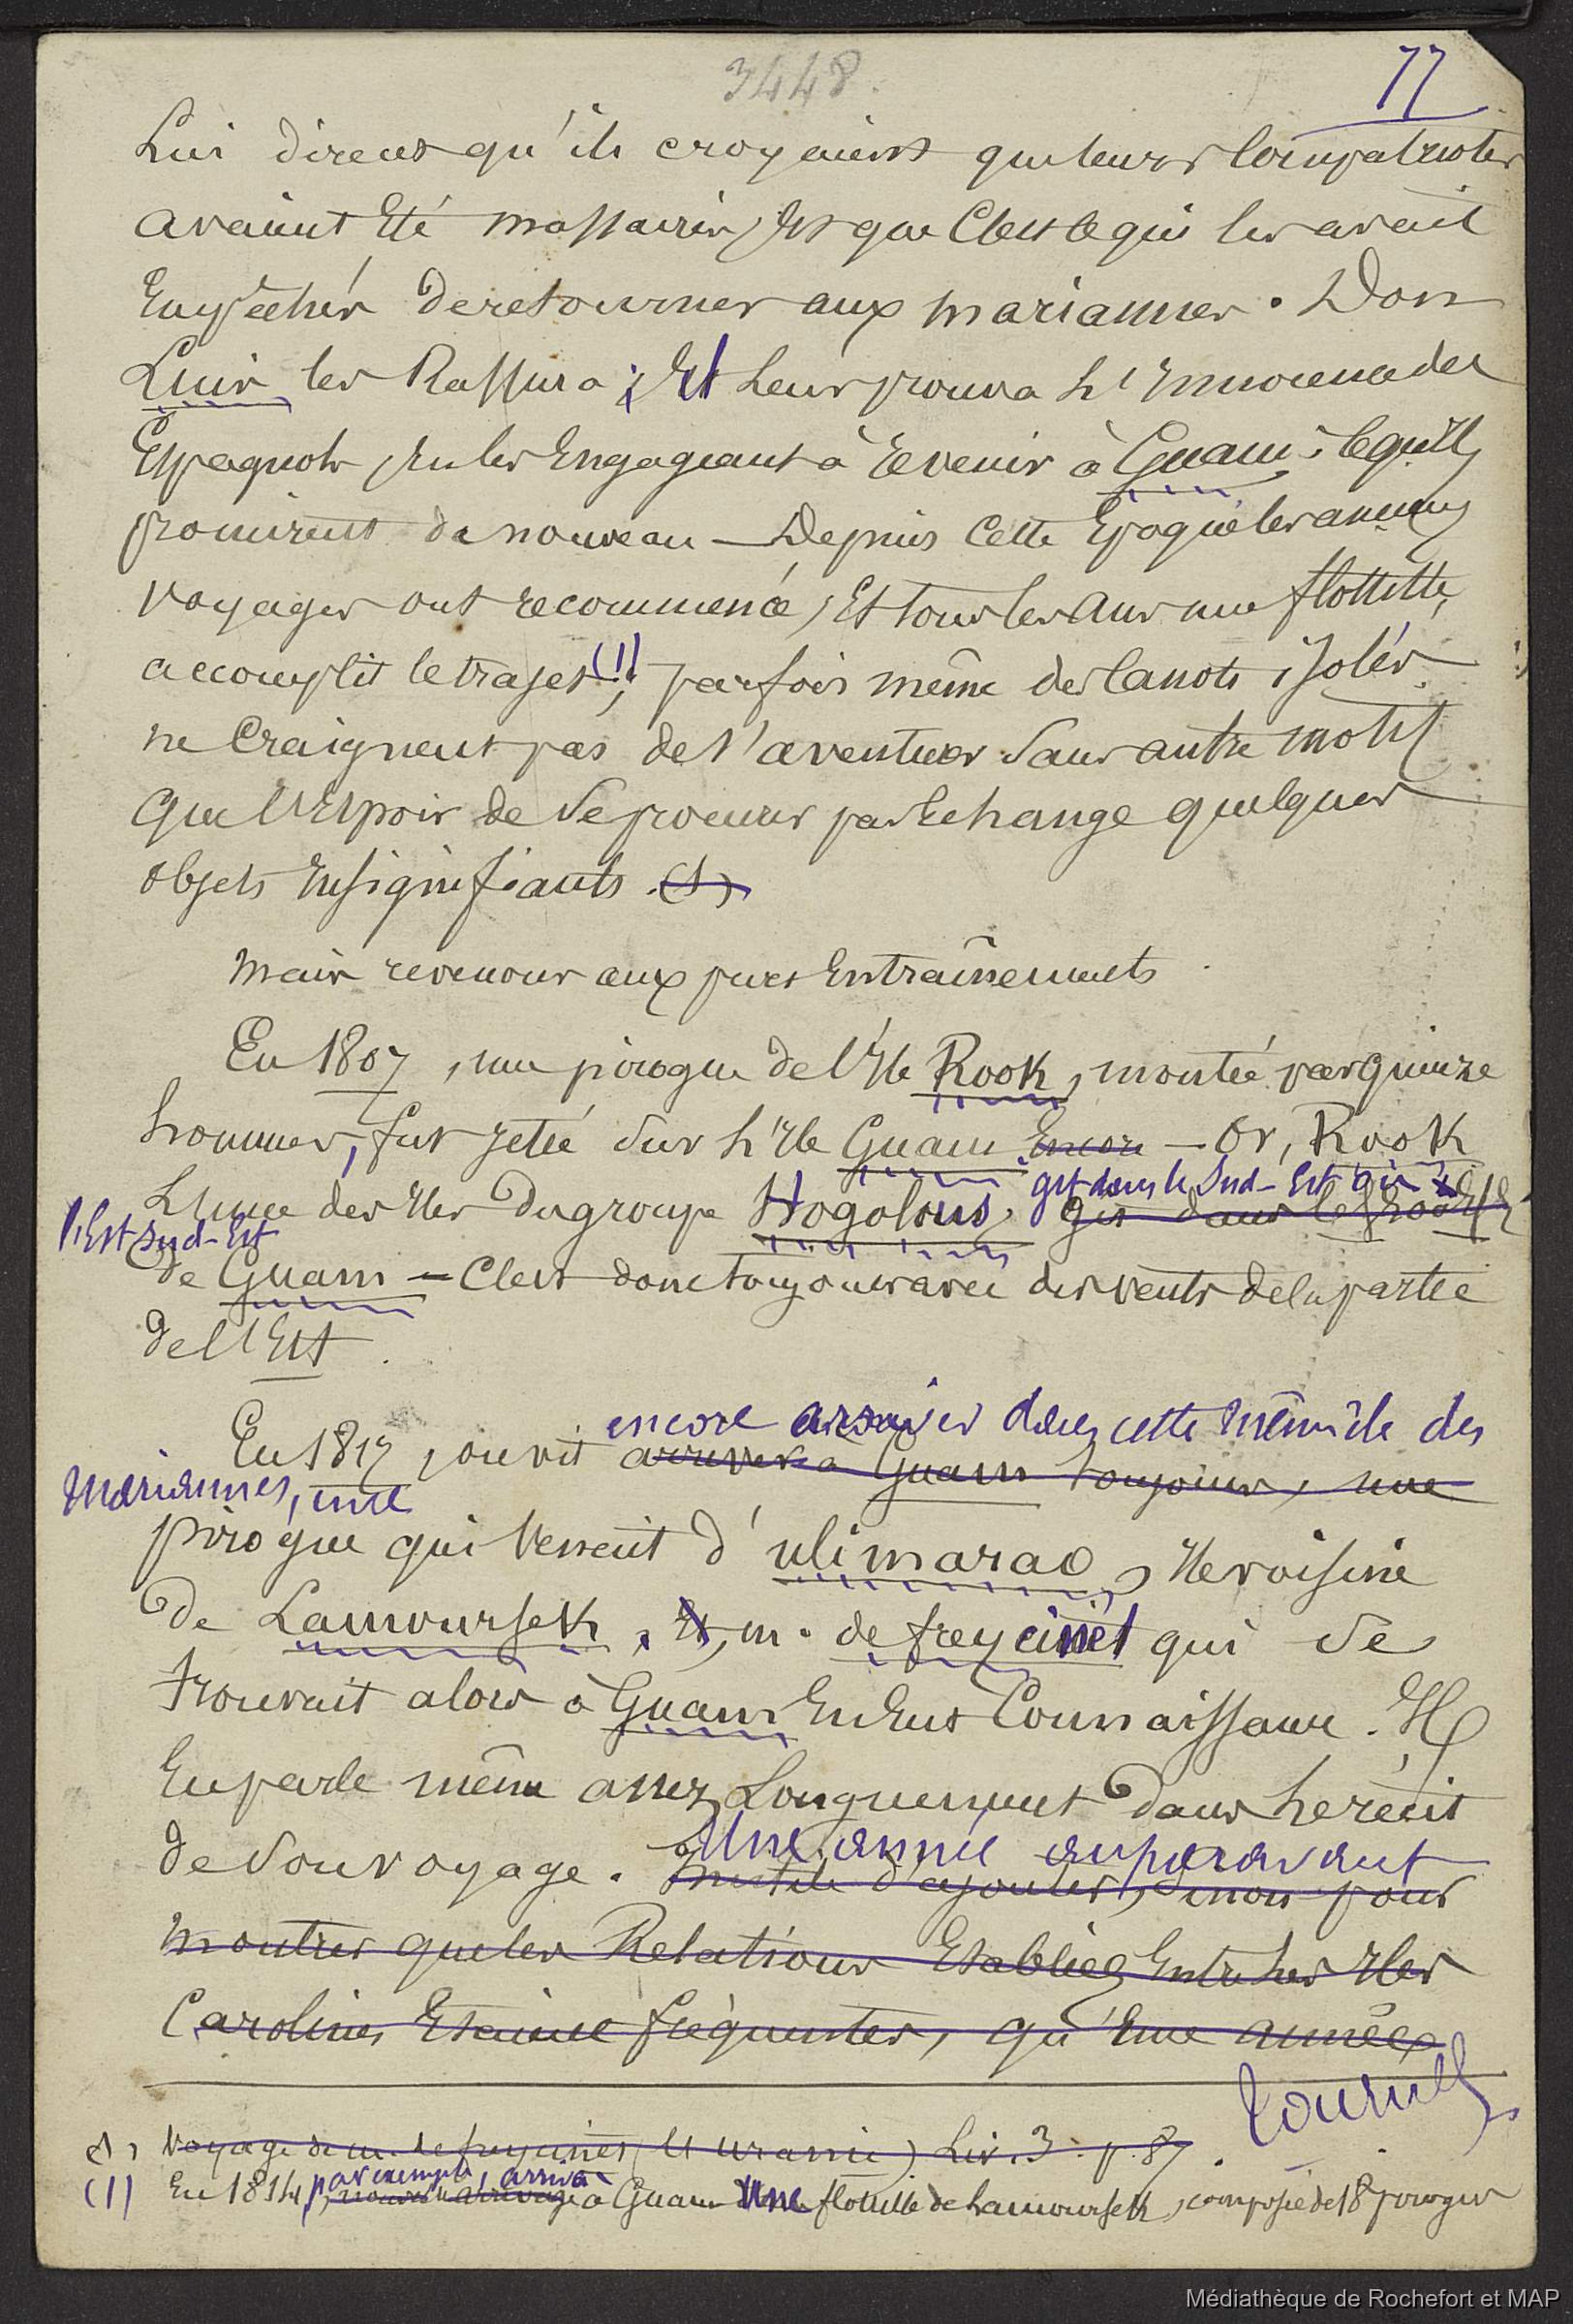 3448.
77
Lui dirent qu'ils croyaient que leurs Compatriotes
avaient été massacrés, et que C'est ce qui les avait
Empêchés de retourner aux mariannes. Don
Luis les Rassura ; Et Leur prouva L'Innocence des
Espagnols, en les Engageant à revenir à Guam ; ce qu'ils
promirent de nouveau — Depuis Cette Epoque les anciens
voyages ont recommencé, Et tous les ans une flottille,
accomplit le trajet (1) ; parfois même des Canots isolés
ne Craignent pas de s'aventurer sans autre motif
que l'Espoir de se procurer par Echange quelques
objets insignifiants. (1)
mais revenons aux purs Entraînements.
En 1807, une pirogue de l'Ile Rook, montée par quinze
hommes, fut jetée sur L'Ile Guam Encore — Or, Rook
gît dans le Sud-Est
L'une des Iles du groupe Hogolous, gît dans le
l'Est Sud-Est
de Guam — C'est donc toujours avec des vents de la partie
de l'Est.
encore arriver dans cette même île des
En 1817, on vit arriver à Guam toujours, une
Mariannes, une
pirogue qui venait d'ulimarao, Ile voisine
de Lamoursek, Et, m. de freycinet qui se
trouvait alors à Guam En Eut Connaissance. Il
En parle même assez Longuement Dans Le récit
Une année auparavant
de son voyage. Inutile d'ajouter, sinon pour
montrer que les Relations Etablies Entre Les Iles
Carolines Etaient fréquentes, qu'Une année
tournez
(1) Voyage de m. de freycinet (l'uranie) Liv. 3. p. 87.
par exemple, arriva
(1) En 1814, nouvel arrivage à Guam Une flottille de Lamoursek, composée de 18 pirogues
Médiathèque de Rochefort et MAP